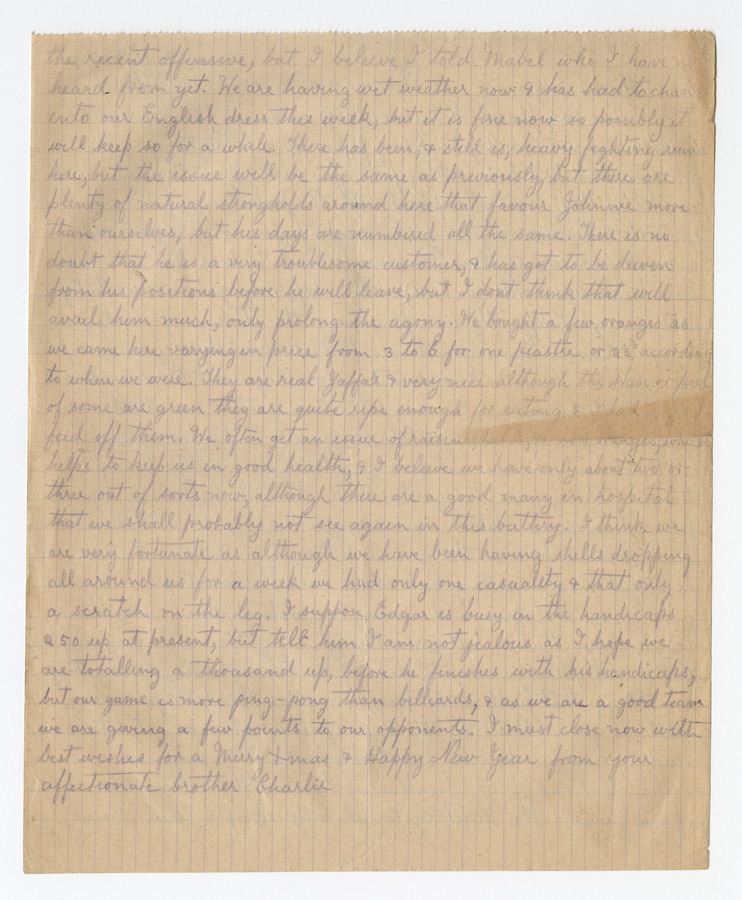 the recent offensive, but I beleive I told Mabel who I have
heard from yet. We are having wet weather now & has had to
into our English dress this week, but it is fine now so possibly it
will keep so for a while. There has been, & still is, heavy fighting
here, but the issue will be the same as previously, but there are
plenty of natural strongholds around here that favour Johnnie more
than ourselves, but his days are numbered all the same. There is no
doubt that he is a very troublesome customer, & has got to be driven
from his positions before he will leave, but I dont think that will
avail him much, only prolong the agony. We bought a few oranges as
we came here varying in price from 3 to 6 for one piastre or according
to where we were. They are real Jaffa's & very nice although the skin or peel
of some are green they are quite ripe enough for eating &
feid off them. We often get an issue of raisins, which
helps to keep us in good health, & I beleive we have only about two or
three out of sorts now, although there are a good many in hospital
that we shall probably not see again in this battery. I think we
are very fortunate as although we have been having shells dropping
all around us for a week we had only one casuality & that only
a scratch on the leg. I suppose Edgar is busy in the handicaps
250 up at present, but tell him I am not jealous as I hope we
are totalling a thousand up, before he finishes with his handicaps,
but our game is more ping-pong than billiards, & as we are a good team
we are giving a few points to our opponents. I must close now with
best wishes for a Merry Xmas & Happy New Year from your
affectionate brother Charlie